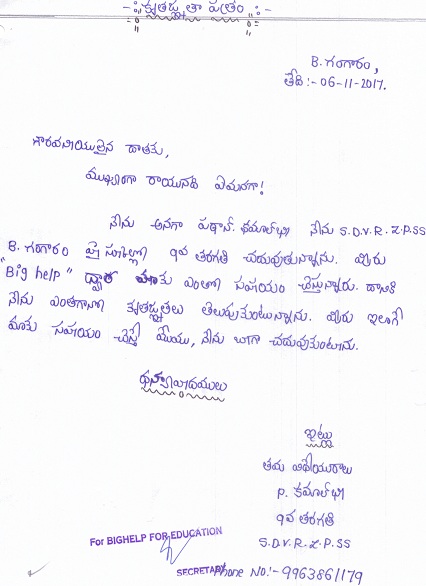 -:: కృతజ్ఞతా పత్రం ::-
B. గంగారం,
తేది:- 06-11-2017.
గౌరవనీయులైన దాతకు,
ముఖ్యంగా రాయునది ఏమనగా!
నేను అనగా పఠాన్. కమాల్‌బీ నేను S.D.V.R.Z.P.SS
B. గంగారం హై స్కూల్లో 9వ తరగతి చదువుతున్నాను. మీరు
"Big help" ద్వారా మాకు ఎంతో సహాయం చేస్తున్నారు. దానికి
నేను ఎంతగానో కృతజ్ఞతలు తెలుపుకుంటున్నాను. మీరు ఇలాగే
మాకు సహాయం చేస్తే మేము, నేను బాగా చదువుకుంటాను.
ధన్యవాదములు
ఇట్లు
తమ విధేయురాలు
P. కమాల్‌బీ
9వ తరగతి
S.D.V.R.Z.P.SS
For BIGHELP FOR EDUCATION
SECRETARY
Phone No:- 9963861179